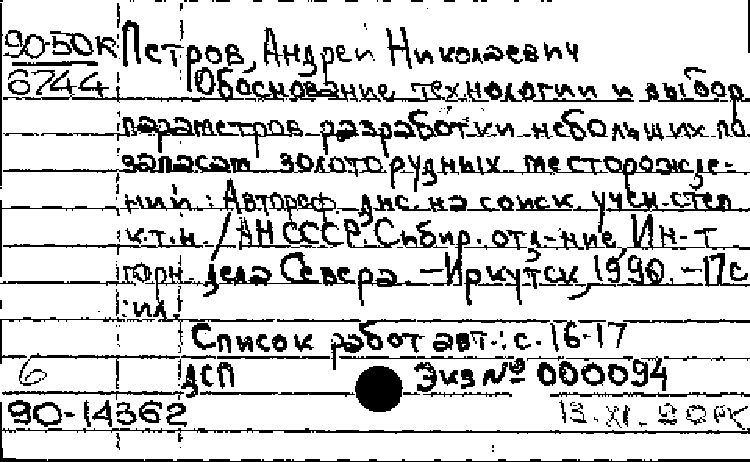 90-50к Петров, Андрей Николаевич
6744 Обоснование технологии и выбор
параметров разработки небольших по
запасам золоторудных месторожде-
ний : Автореф. дис. на соиск. учен. степ.
к.т.н. / АН СССР. Сибир. отд-ние Ин-т
горн. дела Севера. - Иркутск, 1990. - 17с
: ил.
Список работ авт.: с. 16-17
6 ДСП Экз № 000094
90-14362 13.XI.90РК